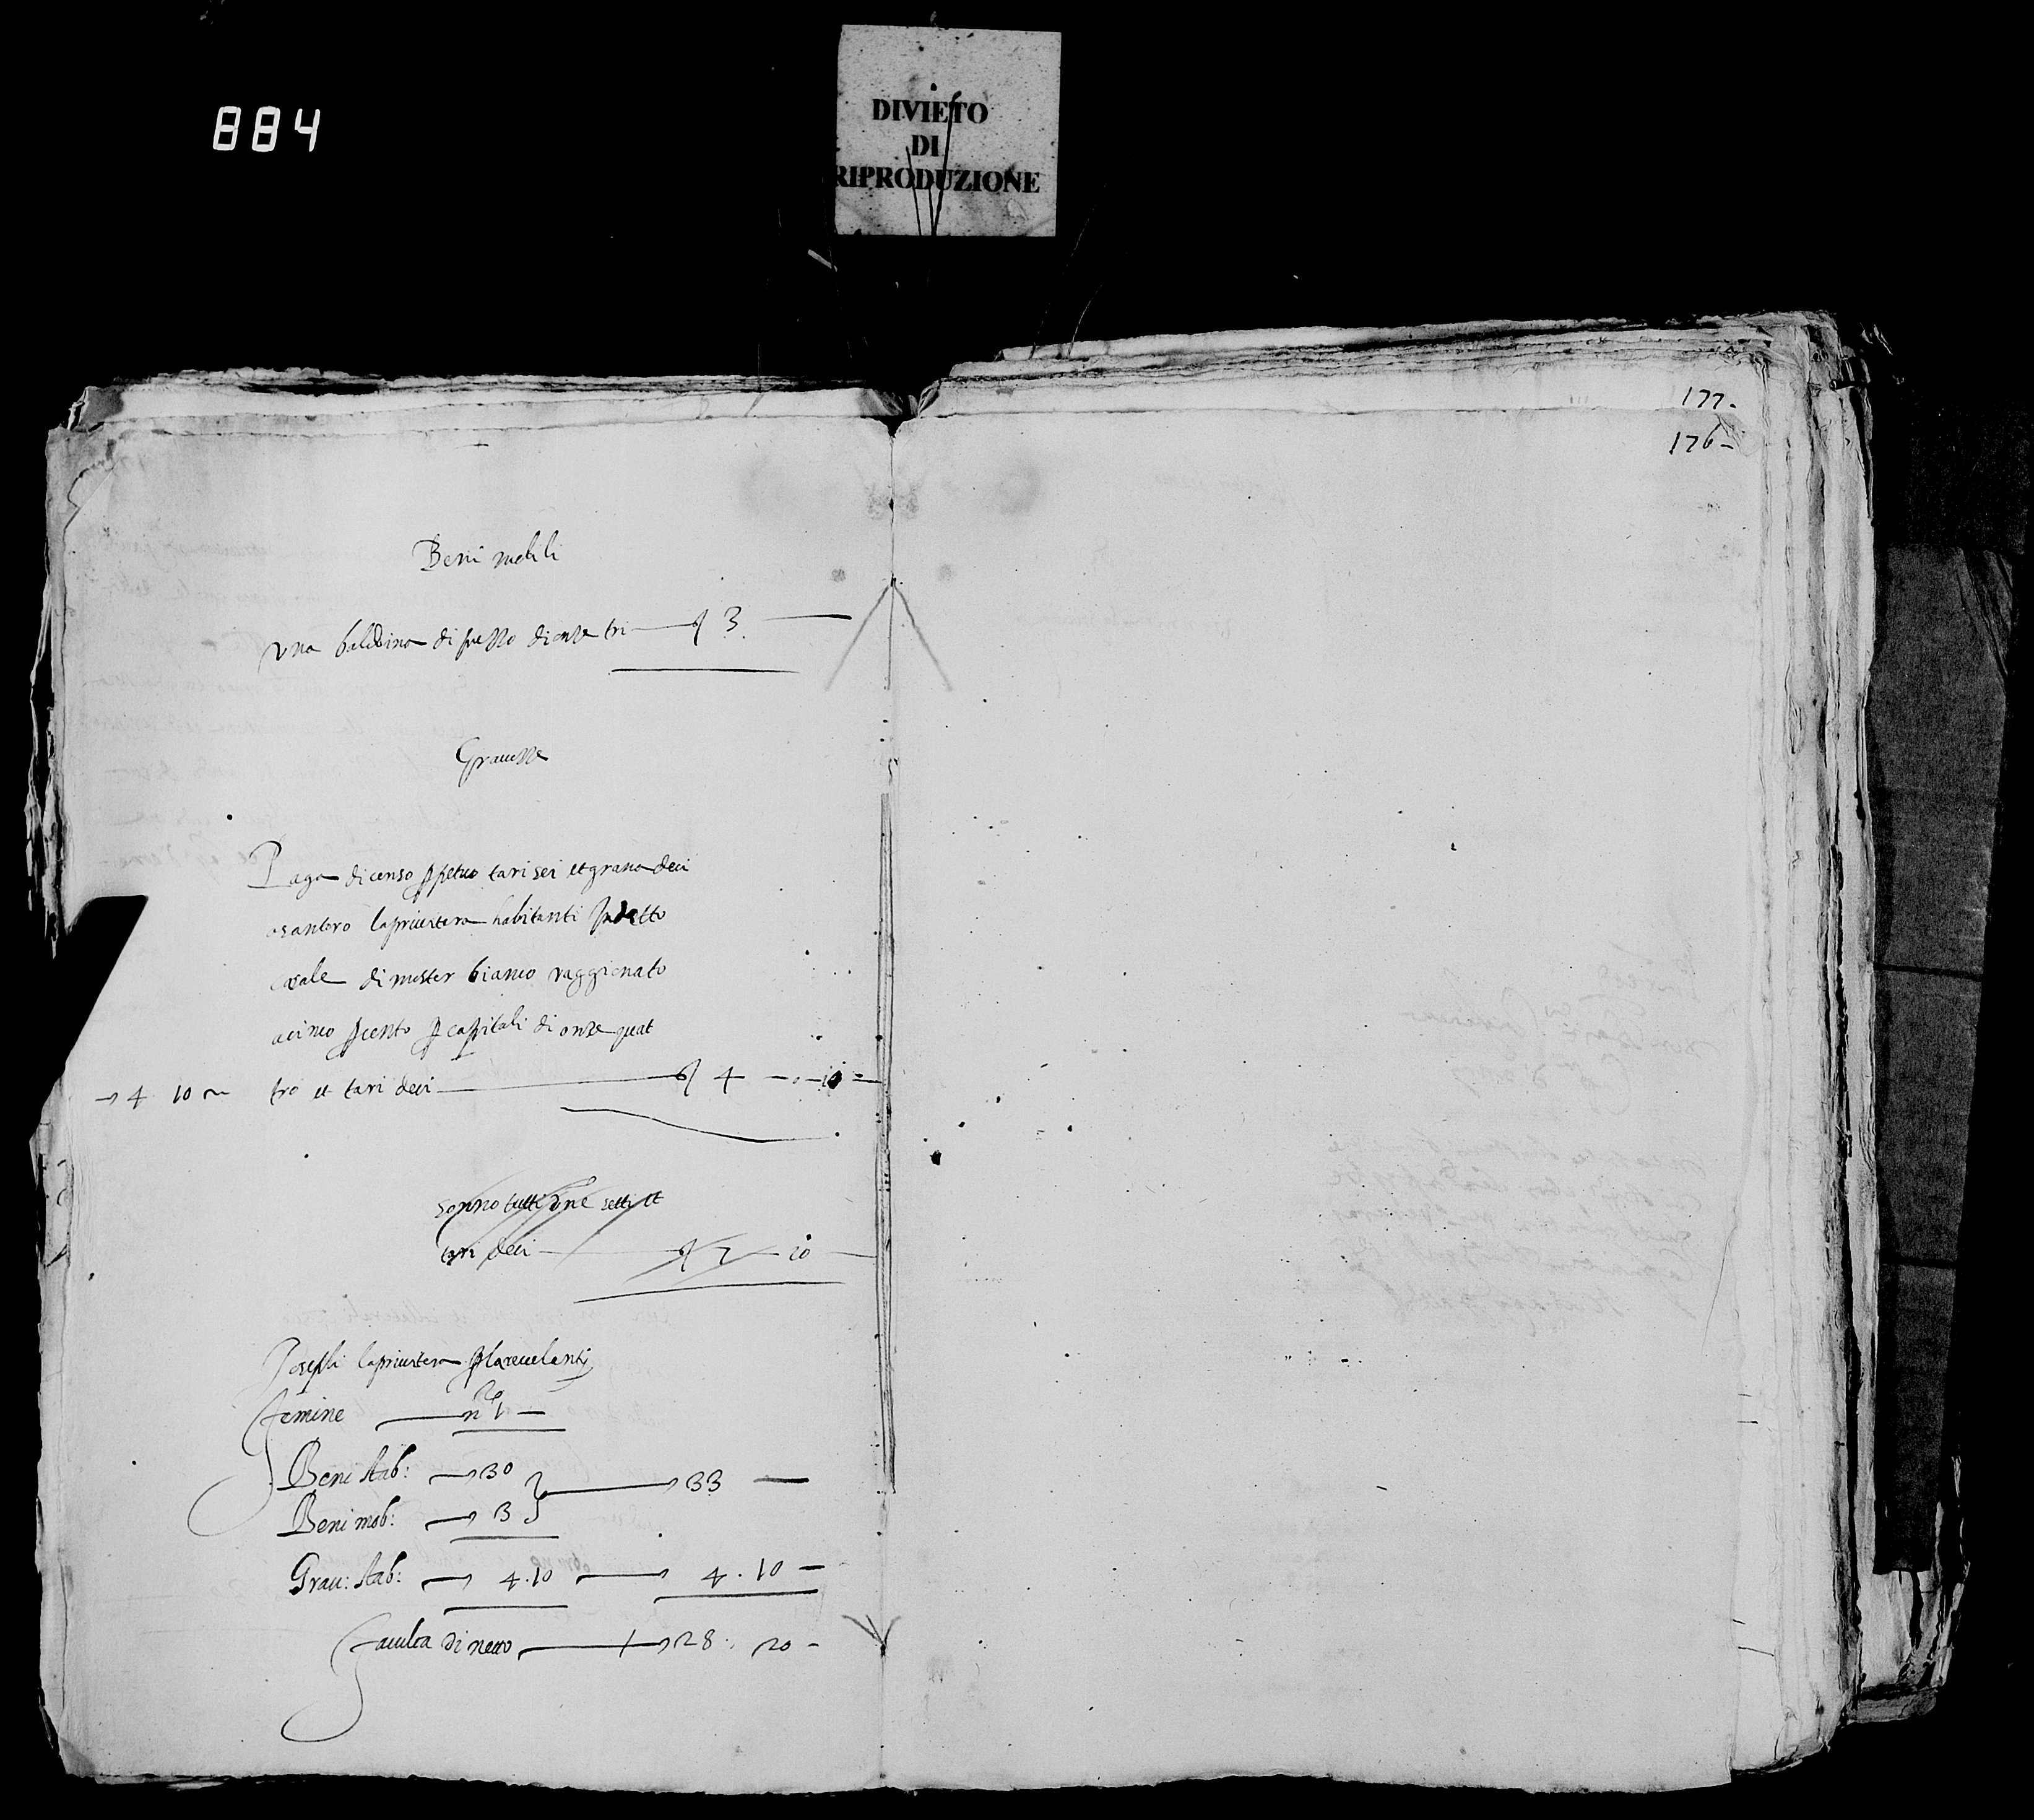 884
DIVIETO
DI
RIPRODUZIONE
177.
176-
Beni mobili
una baldino di prezzo di onze tri 3
Gravezze
Paga di censo ꝑpetuo tari sei et grana deci
a santoro lapriustera habitanti In detto
casale di mister bianco raggionato
a cinco ꝑcento ꝑ capitali di onze quat
4 10 tro et tari deci 4 - 10 -
sonno tutti onze setti et
tari deci 7 - 10
Joseph lapriustera ꝑ la revelanti
femine no 1
Beni stab: 30
33
Beni mob: 3
Grav: stab: 4.10 4.10
faculta di netto 28. 20